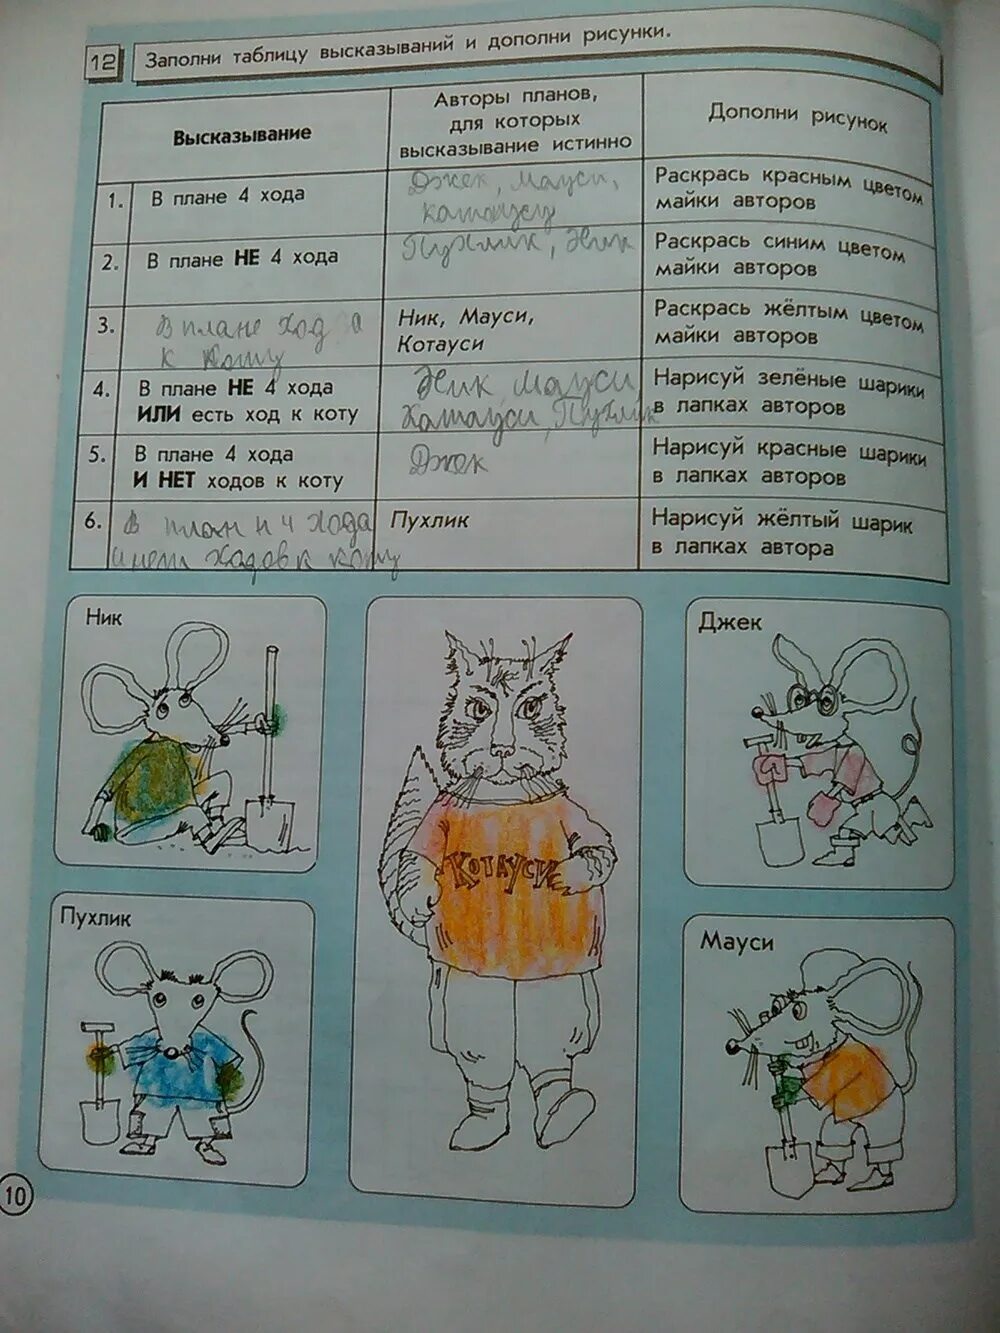 12 Заполни таблицу высказываний и дополни рисунки.
Высказывание
Авторы планов,
для которых
высказывание истинно
Дополни рисунок
1. В плане 4 хода
Джек, Мауси,
котауси
Раскрась красным цветом
майки авторов
2. В плане НЕ 4 хода
Пухлик, Ник
Раскрась синим цветом
майки авторов
3. В плане ход а
к коту
Ник, Мауси,
Котауси
Раскрась жёлтым цветом
майки авторов
4. В плане НЕ 4 хода
ИЛИ есть ход к коту
Ник, Мауси
Котауси, Пухлик
Нарисуй зелёные шарики
в лапках авторов
5. В плане 4 хода
И НЕТ ходов к коту
Джек
Нарисуй красные шарики
в лапках авторов
6. В план н 4 хода
и нет ходов к коту
Пухлик
Нарисуй жёлтый шарик
в лапках автора
Ник
Джек
КОТАУСИ
Пухлик
Мауси
10